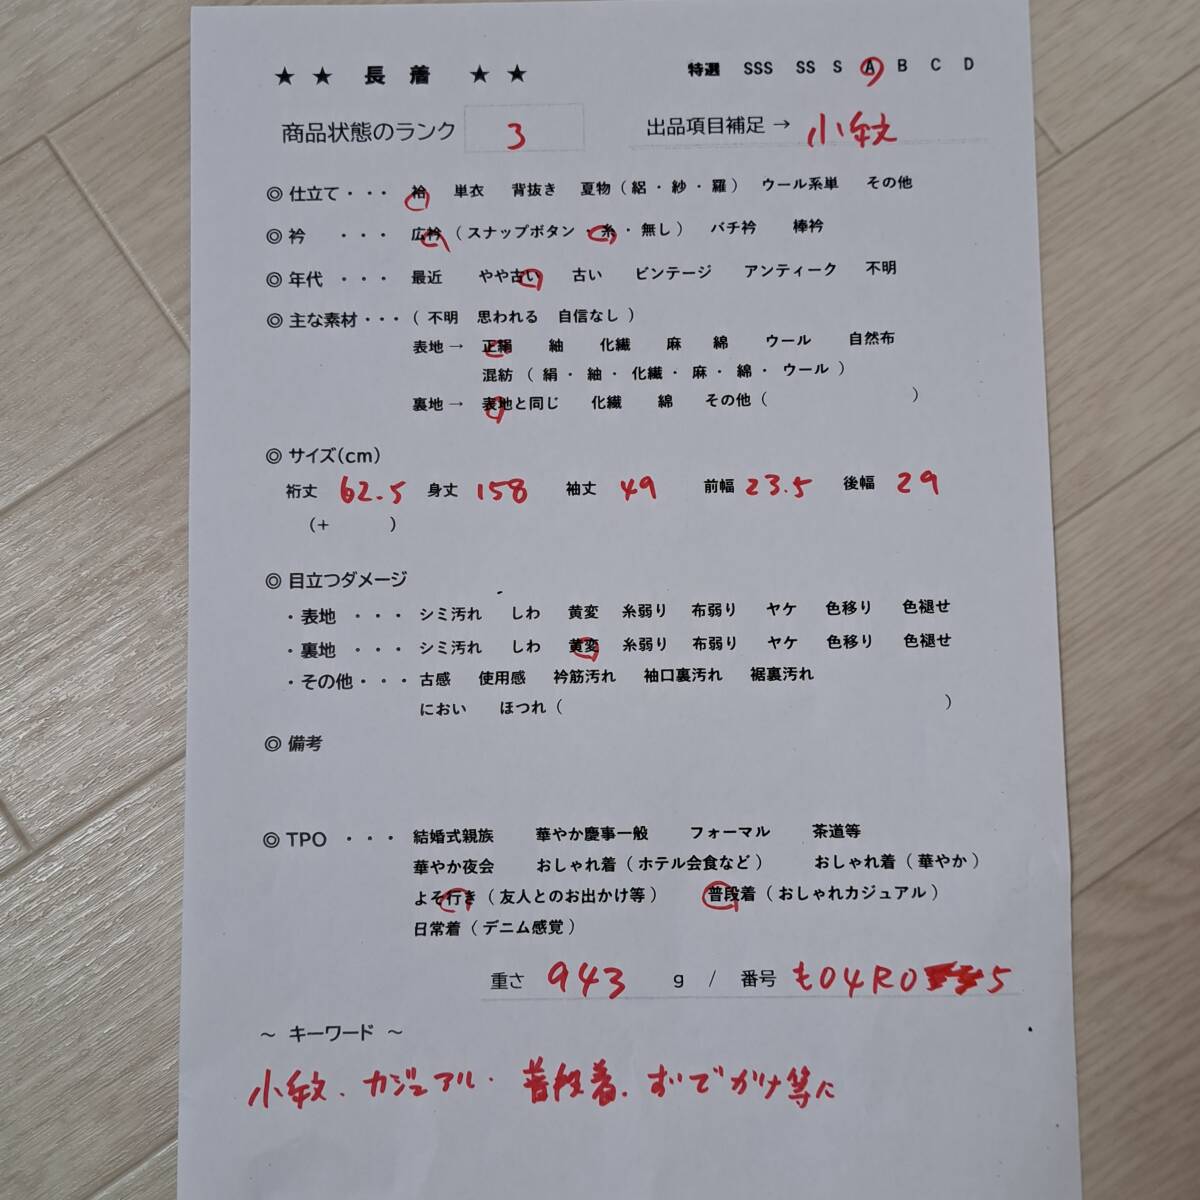 ★ ★ 長 着 ★ ★ 特選 SSS SS S A B C D
商品状態のランク 3 出品項目補足 → 小紋
◎ 仕立て ・・・ 袷 単衣 背抜き 夏物（絽・紗・羅） ウール系単 その他
◎ 衿 ・・・ 広衿（スナップボタン・糸・無し） バチ衿 棒衿
◎ 年代 ・・・ 最近 やや古い 古い ビンテージ アンティーク 不明
◎ 主な素材・・・（不明 思われる 自信なし）
表地 → 正絹 紬 化繊 麻 綿 ウール 自然布
混紡（絹・紬・化繊・麻・綿・ウール）
裏地 → 表地と同じ 化繊 綿 その他（ ）
◎ サイズ(cm)
裄丈 62.5 身丈 158 袖丈 49 前幅 23.5 後幅 29
（+ ）
◎ 目立つダメージ
・表地 ・・・ シミ汚れ しわ 黄変 糸弱り 布弱り ヤケ 色移り 色褪せ
・裏地 ・・・ シミ汚れ しわ 黄変 糸弱り 布弱り ヤケ 色移り 色褪せ
・その他・・・ 古感 使用感 衿筋汚れ 袖口裏汚れ 裾裏汚れ
におい ほつれ（ ）
◎ 備考
◎ TPO ・・・ 結婚式親族 華やか慶事一般 フォーマル 茶道等
華やか夜会 おしゃれ着（ホテル会食など） おしゃれ着（華やか）
よそ行き（友人とのお出かけ等） 普段着（おしゃれカジュアル）
日常着（デニム感覚）
重さ 943 g / 番号 も04R0 5
～ キーワード ～
小紋、カジュアル・普段着、おでかけ等に